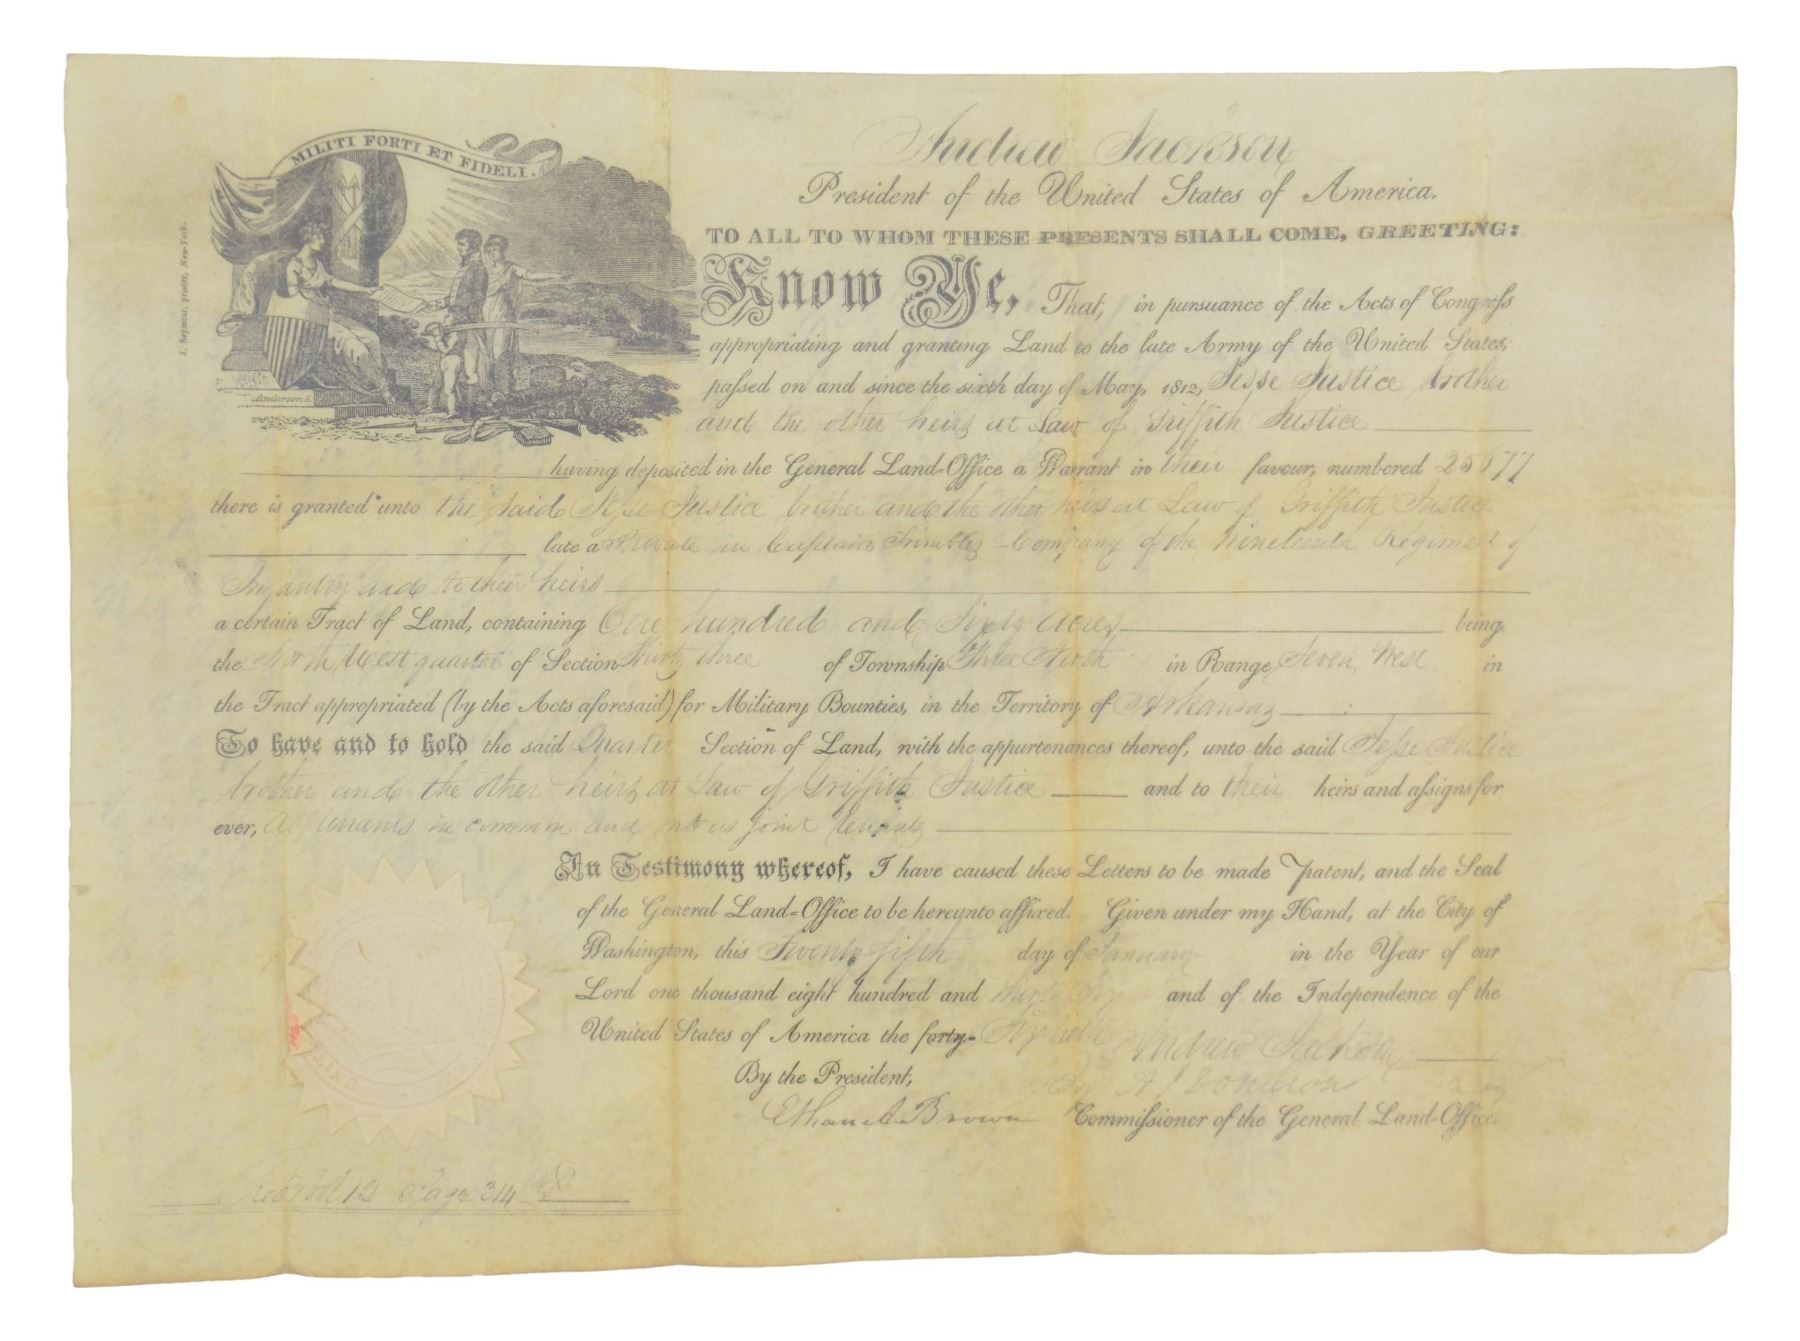 MILITI FORTI ET FIDELI.
J. Seymour, printer, New-York.
Anderson S.
Andrew Jackson
President of the United States of America.
TO ALL TO WHOM THESE PRESENTS SHALL COME, GREETING:
Know Ye, That, in pursuance of the Acts of Congress
appropriating and granting Land to the late Army of the United States,
passed on and since the sixth day of May, 1812, Jesse Justice brother
and the other heirs at Law of Griffith Justice
having deposited in the General Land-Office a Warrant in their favour, numbered
there is granted unto the said Jesse Justice brother and the other heirs at Law of Griffith Justice
late a Private in Captain Trimbles Company of the Nineteenth Regiment of
Infantry and to their heirs
a certain Tract of Land, containing One hundred and Sixty acres being
the North West quarter of Section Thirty three of Township Three North in Range Seven West in
the Tract appropriated (by the Acts aforesaid) for Military Bounties, in the Territory of Arkansas
To have and to hold the said Quarter Section of Land, with the appurtenances thereof, unto the said Jesse Justice
brother and the other heirs at Law of Griffith Justice and to their heirs and assigns for
ever, as tenants in common and not as joint tenants
In Testimony whereof, I have caused these Letters to be made Patent, and the Seal
of the General Land=Office to be hereunto affixed. Given under my Hand, at the City of
Washington, this Twenty fifth day of January in the Year of our
Lord one thousand eight hundred and thirty six and of the Independence of the
United States of America the forty=
Andrew Jackson
By the President, By A J Donelson Secy
Ethan A. Brown Commissioner of the General Land-Office.
Recd Vol 12 Page 314